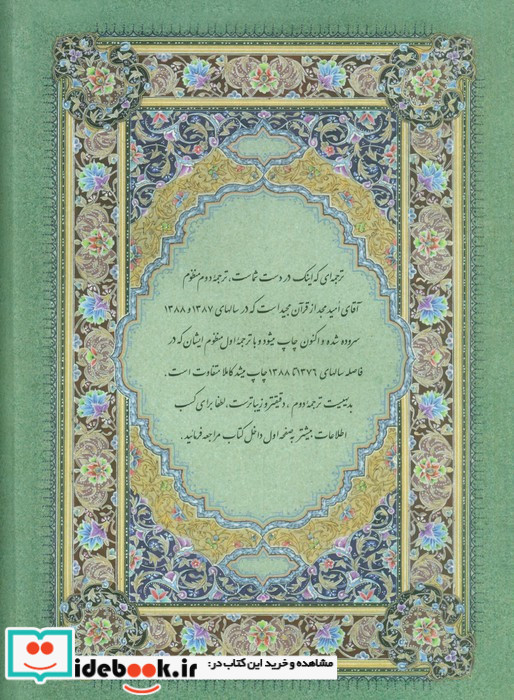 ترجمه‌ای که اینک در دست شماست، ترجمهٔ دوم منظوم
آقای امید مجد از قرآن مجید است که در سالهای ۱۳۸۷ و ۱۳۸۸
سروده شده و اکنون چاپ میشود و با ترجمهٔ اول منظوم ایشان که در
فاصله سالهای ۱۳۷۶ تا ۱۳۸۸ چاپ میشد کاملا متفاوت است.
بدیهیست ترجمهٔ دوم، دقیقتر و زیباترست، لطفا برای کسب
اطلاعات بیشتر به صفحه اول داخل کتاب مراجعه فرمائید.
مشاهده و خرید این کتاب در:
idebook.ir